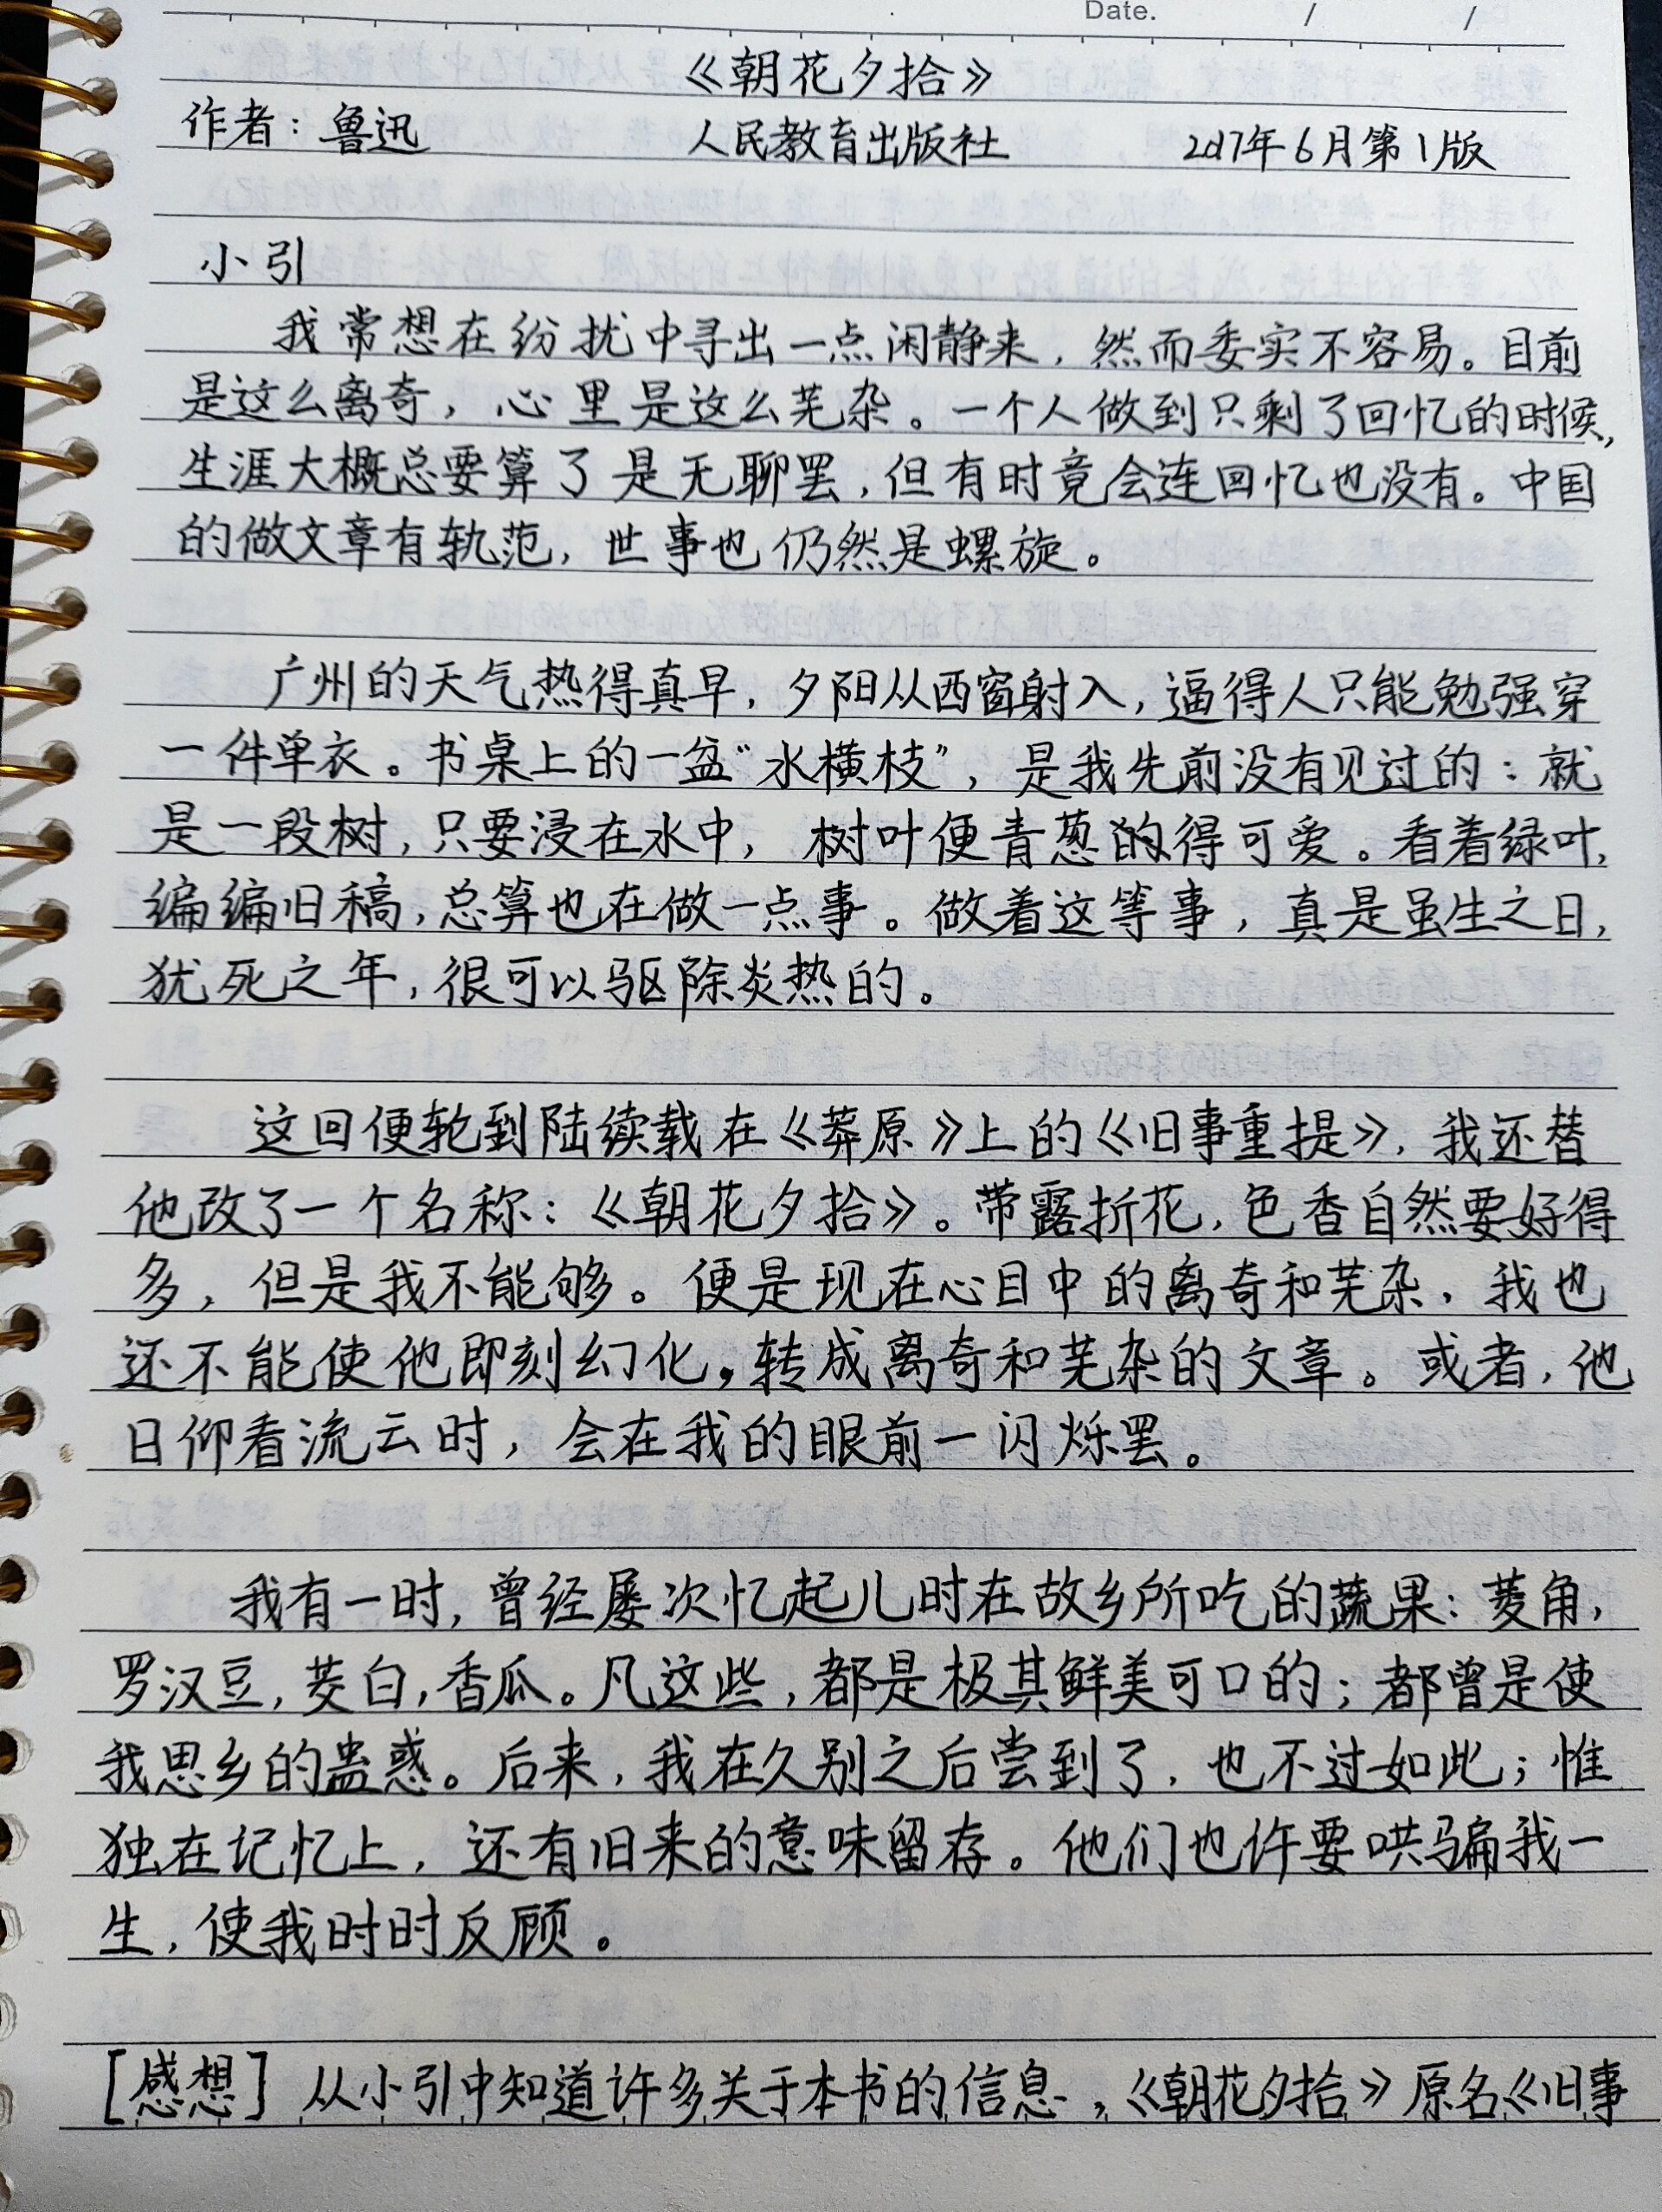 Date. / /
《朝花夕拾》
作者：鲁迅 人民教育出版社 2017年6月第1版
小引
我常想在纷扰中寻出一点闲静来，然而委实不容易。目前
是这么离奇，心里是这么芜杂。一个人做到只剩了回忆的时候，
生涯大概总要算了是无聊罢，但有时竟会连回忆也没有。中国
的做文章有轨范，世事也仍然是螺旋。
广州的天气热得真早，夕阳从西窗射入，逼得人只能勉强穿
一件单衣。书桌上的一盆“水横枝”，是我先前没有见过的：就
是一段树，只要浸在水中，树叶便青葱的得可爱。看着绿叶，
编编旧稿，总算也在做一点事。做着这等事，真是虽生之日，
犹死之年，很可以驱除炎热的。
这回便轮到陆续载在《莽原》上的《旧事重提》，我还替
他改了一个名称：《朝花夕拾》。带露折花，色香自然要好得
多，但是我不能够。便是现在心目中的离奇和芜杂，我也
还不能使他即刻幻化，转成离奇和芜杂的文章。或者，他
日仰看流云时，会在我的眼前一闪烁罢。
我有一时，曾经屡次忆起儿时在故乡所吃的蔬果：菱角，
罗汉豆，茭白，香瓜。凡这些，都是极其鲜美可口的；都曾是使
我思乡的蛊惑。后来，我在久别之后尝到了，也不过如此；惟
独在记忆上，还有旧来的意味留存。他们也许要哄骗我一
生，使我时时反顾。
[感想] 从小引中知道许多关于本书的信息，《朝花夕拾》原名《旧事